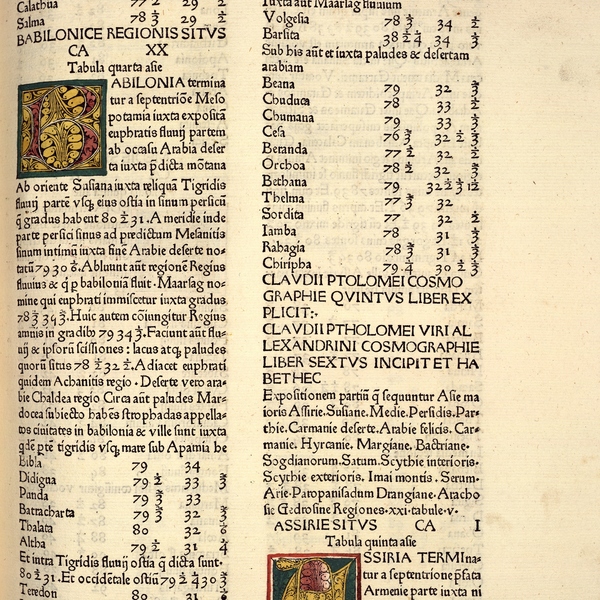 Calathua 77 ½ 29 ½
Salma 78 ⅔ 29 ½
BABILONICE REGIONIS SITVS
CA XX
Tabula quarta asie
BABILONIA termina
tur a septentriōe Meso
potamia iuxta expositā
euphratis fluuij partem
ab occasu Arabia deser
ta iuxta p̄dicta mōtana
Ab oriente Susiana iuxta reliquā Tigridis
fluuij partē vsq; eius ostia in sinum persicū
q̄ gradus habent 80 ½ 31 . A meridie inde
parte persici sinus ad predictum Mesanitis
sinum intimū iuxta finē Arabie deserte no-
tatū 79 30 . Abluunt aūt regionē Regius
fluuius & q̄ p babiloniā fluit . Maarsag no-
mine qui euphrati immiscetur iuxta gradus
Huic autem cōiungitur Regius
amnis in gradib9 79 34 ⅓ . Faciunt aūt flu-
uij & ipsorū scissiones : lacus atq; paludes
quorū situs 78 ½ 32 ½ . Adiacet euphrati
quidem Achanitis regio . Deserte vero ara-
bie Chaldea regio Circa aūt paludes Mar-
docea subiecto habēs strophadas appella-
tos ciuitates in babilonia & ville sunt iuxta
qdē ptē tigridis vsq; mare sub Apamia he
Bibla 79 34
Didigna 79 ½ 33 ⅔
Punda 79 ⅔ 33
Batracharta 79 ⅔ 32 ⅔
Thalata 80 32
Altha 79 ½ 31 ¼
Et intra Tigridis fluuij ostia q̄ dicta sunt .
80 ½ 31 . Et occidētale ostiū 79
Teredon 80 31
Iuxta aūt Maarsag fluuium
Volgesia 78 ⅔ 34 ½
Barsita 34 ⅓
Sub his aūt et iuxta paludes & desertam
arabiam
Beana 79 32 ⅔
Chuduca 78 33 ½
Chumana 79 33
Cesa 76 ⅔ 32
Beranda 77 ½ 32
Orchoa 78 ½ 32 ⅔
Bethana 79
Thelma 77 ⅔ 32
Sordita 77 32 ½
Iamba 78 31 ⅓
Rabagia 78 ⅔ 31 ½
Chiripha 79 ¼ 30
CLAVDII PTOLOMEI COSMO
GRAPHIE QVINTVS LIBER EX
PLICIT:·
CLAVDII PTHOLOMEI VIRI AL
LEXANDRINI COSMOGRAPHIE
LIBER SEXTVS INCIPIT ET HA
BET HEC
Expositionem partiū q̄ sequuntur Asie ma
ioris Assirie . Susiane . Medie . Persidis . Par-
thie . Carmanie deserte . Arabie felicis . Car-
manie . Hyrcanie . Margiane . Bactriane .
Sogdianorum . Satum . Scythie interioris .
Scythie exterioris . Imai montis . Serum .
Arie . Paropanisadum Drangiane . Aracho
sie Gedrosine Regiones . xxi . tabule . v .
ASSIRIE SITVS CA I
Tabula quinta asie
ASSIRIA TERMIna-
tur a septentrione p̄fata
Armenie parte iuxta ni